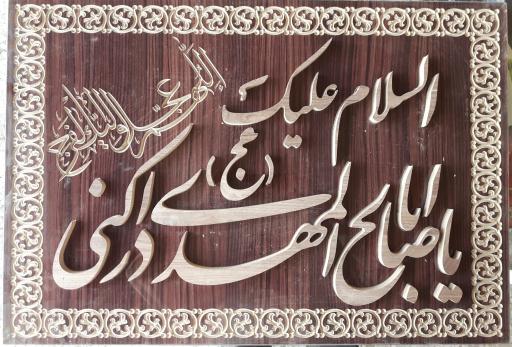 السلام علیک
یا اباصالح المهدی (عج) ادرکنی
اللهم عجل لولیک الفرج